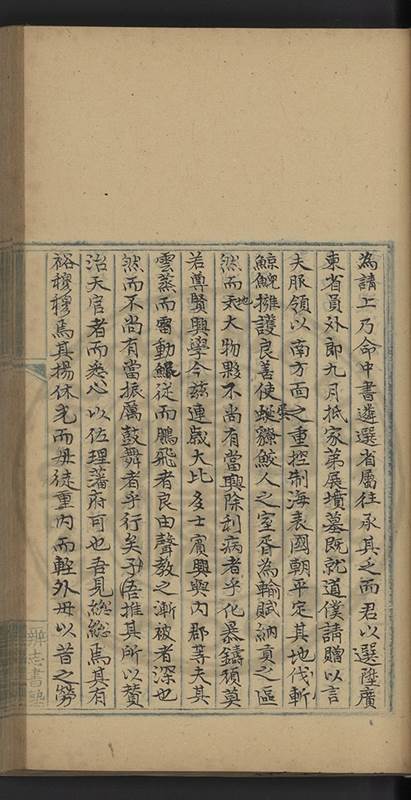 為請上乃命中書遴選省屬往承其乏而君以選陞廣
東省員外郎九月抵家弟展墳墓既就道僕請贈以言
夫服領以南方面之重控制海表國朝平定其地伐斬
鯨鯢擁護良善使蜒獠鮫人之室胥為輸賦納貢之區
然而天地大物夥不尚有當興除利病者乎化暴鑄頑莫
若尊賢興學今茲連歲大比多士賓興興內郡等夫其
雲蒸而雷動鱗從而鵬飛者良由聲教之漸被者深也
然而不尚有當振厲鼓舞者乎行矣子吾推其所以贊
治天官者而悉心以佐理藩府可也吾見總總焉其有
裕穆穆焉其揚休光而毋徒重內而輕外毋以昔之勞